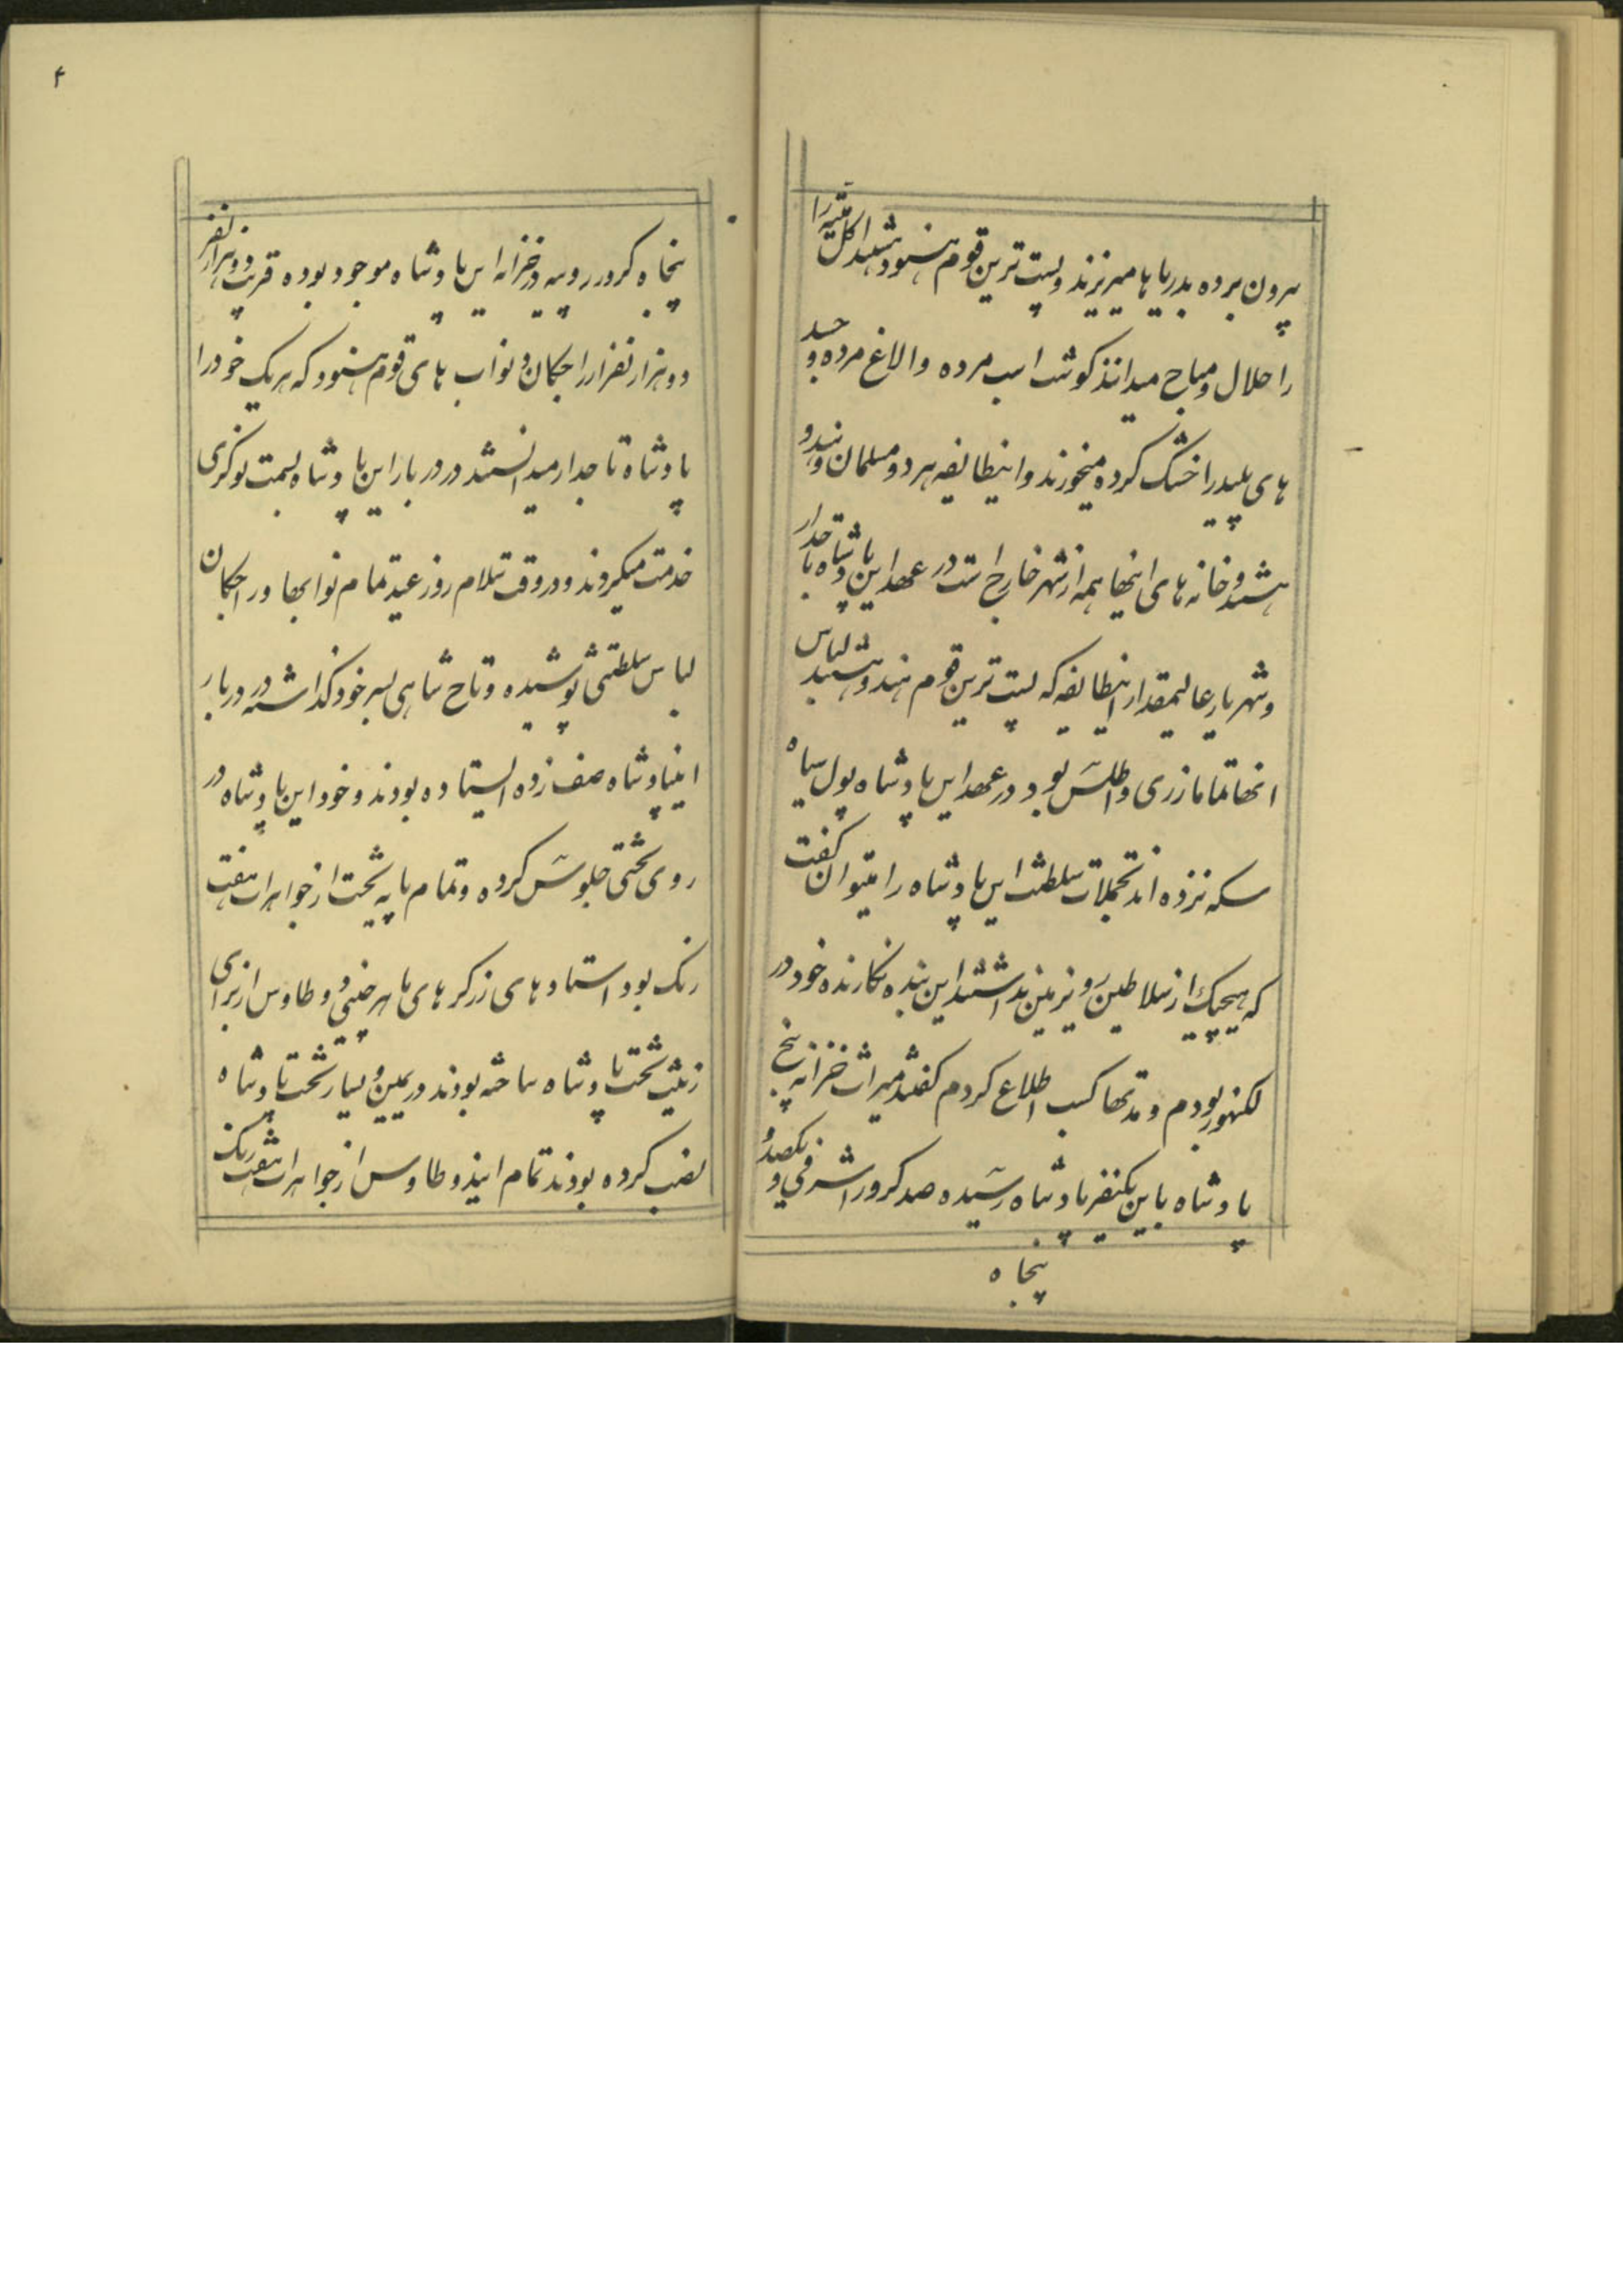 بیرون برده بدریاها میریزند و پست ترین قوم هنود هستند اکل میته را
را حلال و مباح میدانند کوشت اسب مرده و الاغ مرده و
های پلید را خشک کرده میخورند و اینطایفه هر دو مسلمان و هندو
هستند و خانه های انها همه از شهر خارج است در عهد این پادشاه تاجدار
و شهریار عالیمقدار اینطایفه که پست ترین قوم هند هستند لباس
انها تماما زری و اطلس بود در عهد این پادشاه پول سیاه
سکه نزده اند تجملات سلطنت این پادشاه را میتوان گفت
که هیچیک از سلاطین روی زمین نداشتند این بنده نکارنده خود در
لکنهور بودم و مدتها کسب اطلاع کردم کفتند میراث خزانه پنج
پادشاه باین یکنفر پادشاه رسیده صد کرور اشرفی و یکصد و
پنجاه
۴
پنجاه کرور روپیه در خزانه این پادشاه موجود بوده قریب دو هزار نفر
دو هزار نفر از راجکان و نواب های قوم هنود که هر یک خود را
پادشاه تاجدار میدانستند در دربار این پادشاه بسمت نوکری
خدمت میکردند و در وقت سلام روز عید تمام نوابها و راجکان
لباس سلطنتی پوشیده و تاج شاهی بسر خود کذاشته در دربار
اینپادشاه صف زده ایستاده بودند و خود این پادشاه در
روی تختی جلوس کرده و تمام پایه تخت از جواهرات هفت
رنک بود استادهای زرکرهای ماهر و طاوس از برای
زینت تخت پادشاه ساخته بودند در یمین و یسار تخت پادشاه
نصب کرده بودند تمام و طاوس از جواهرات هفت رنک